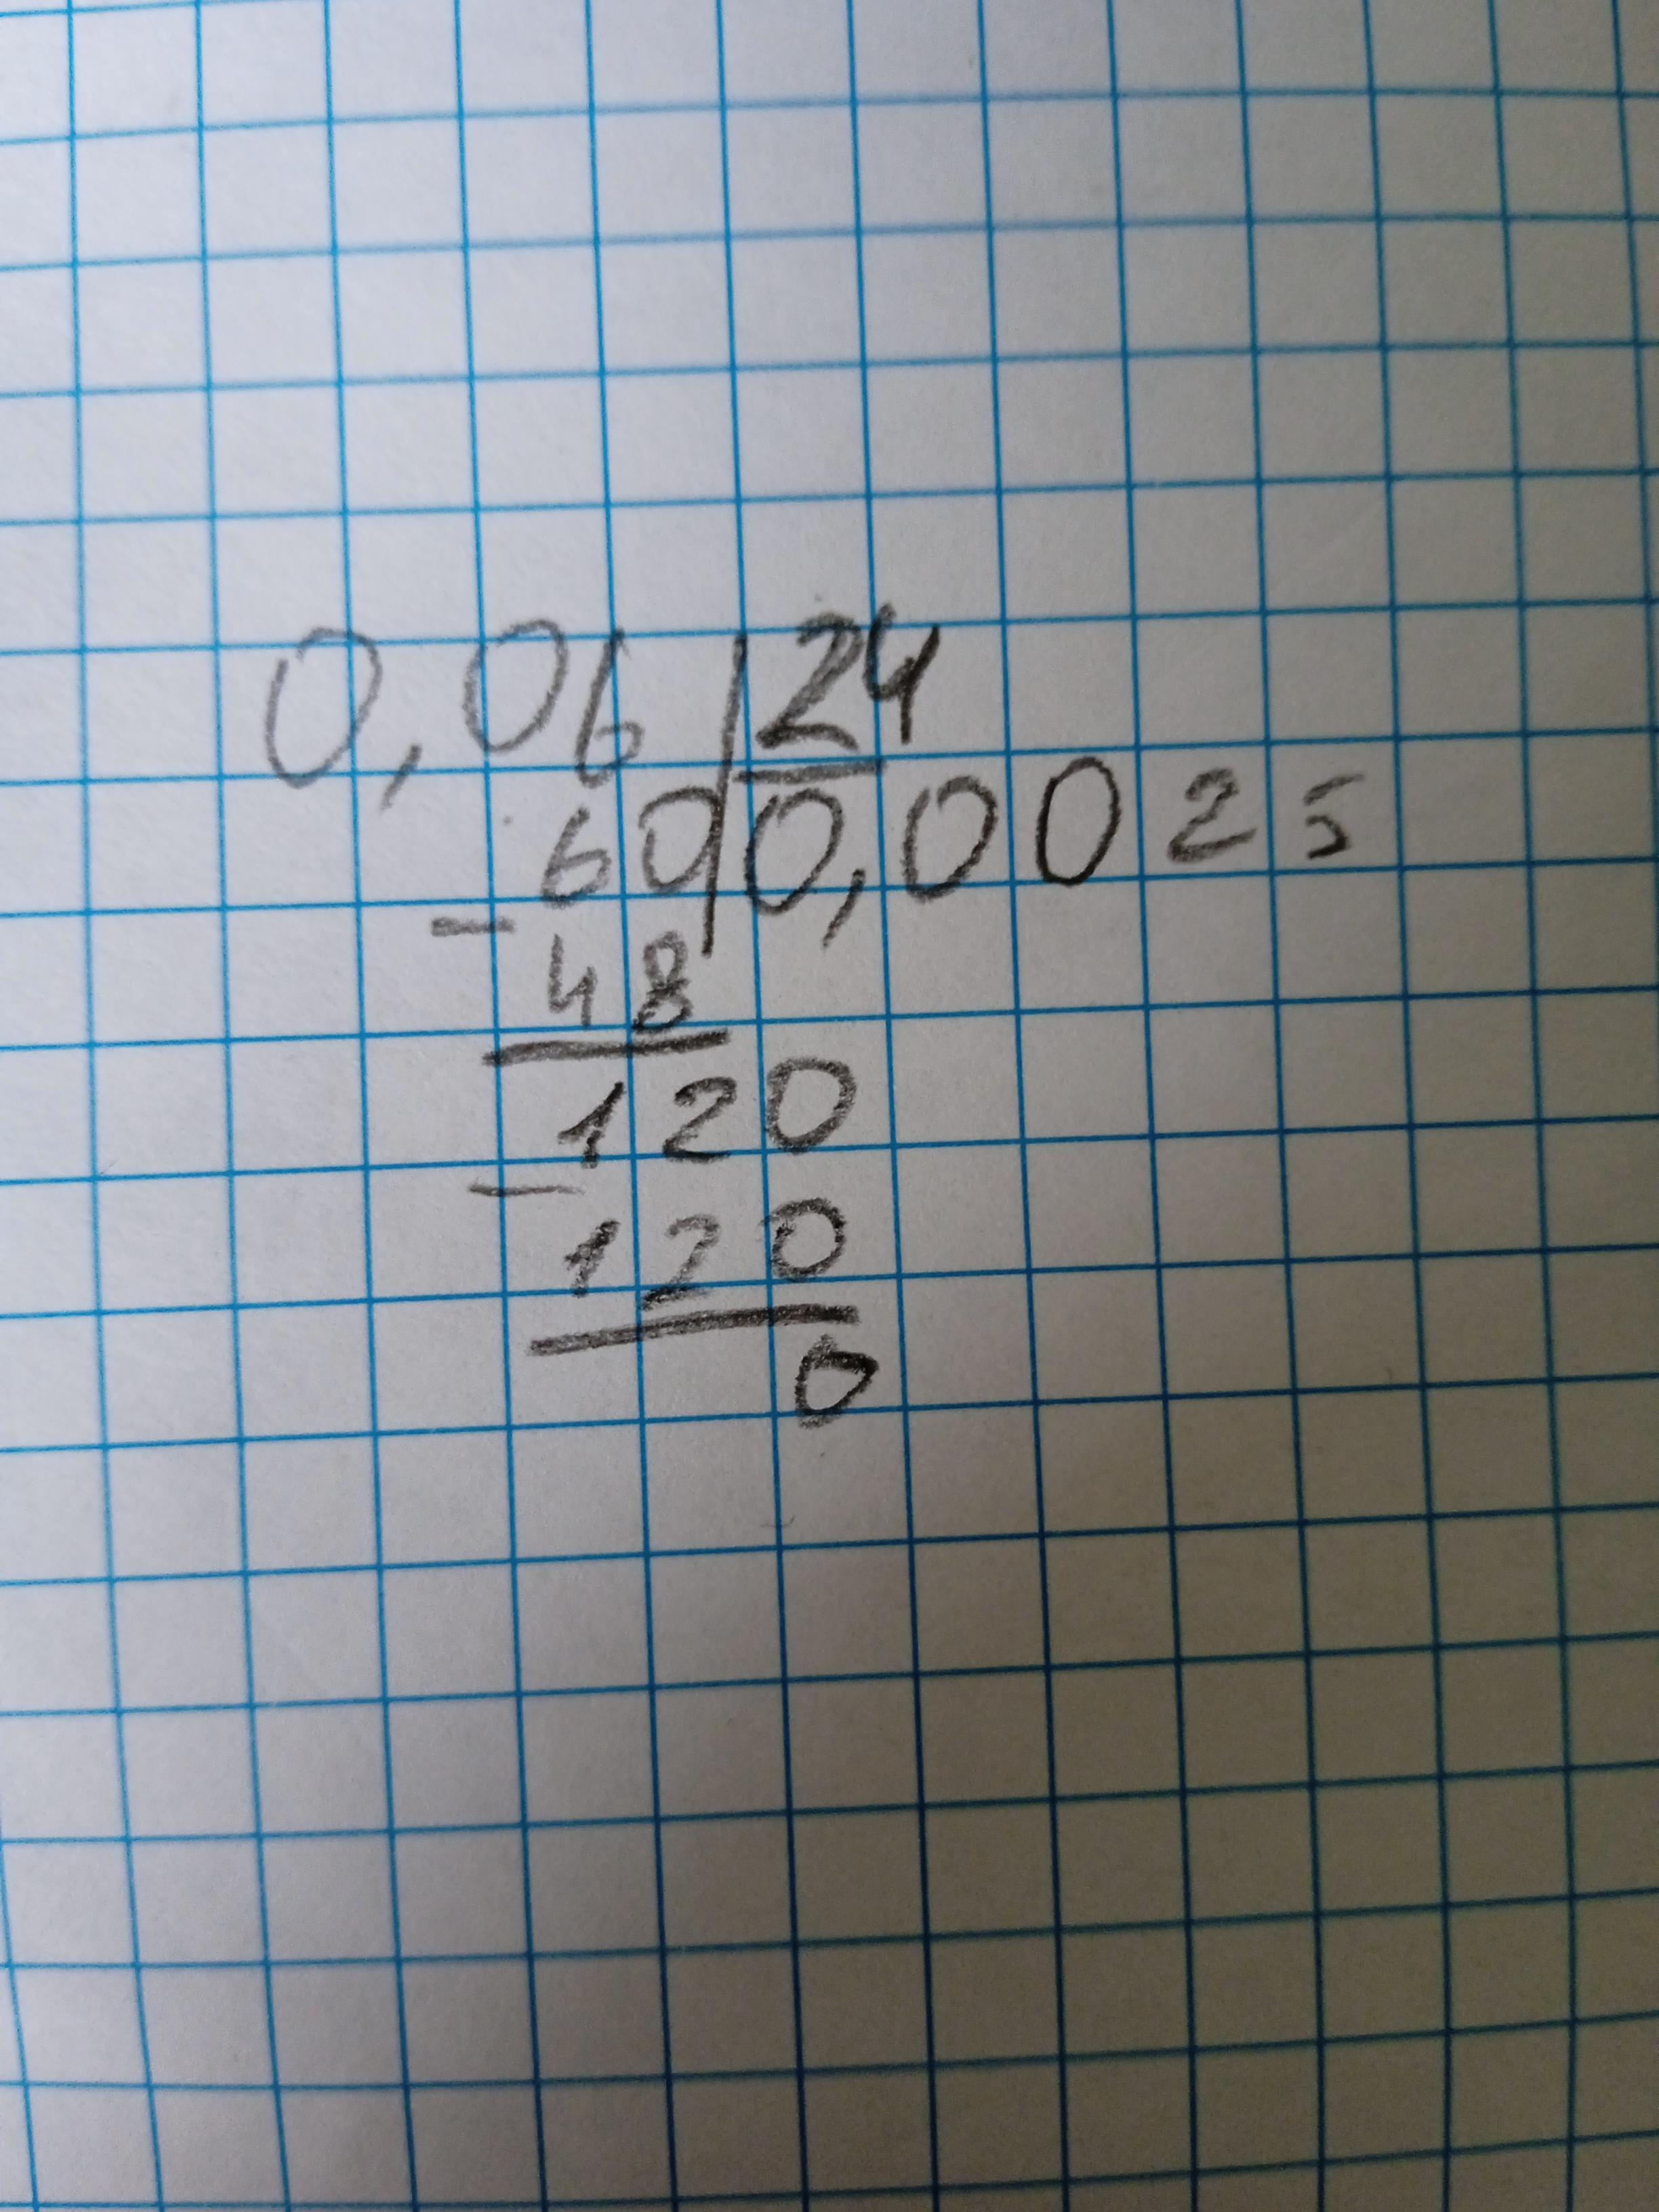 0,06 | 24
60 | 0,0025
- 48
120
- 120
0